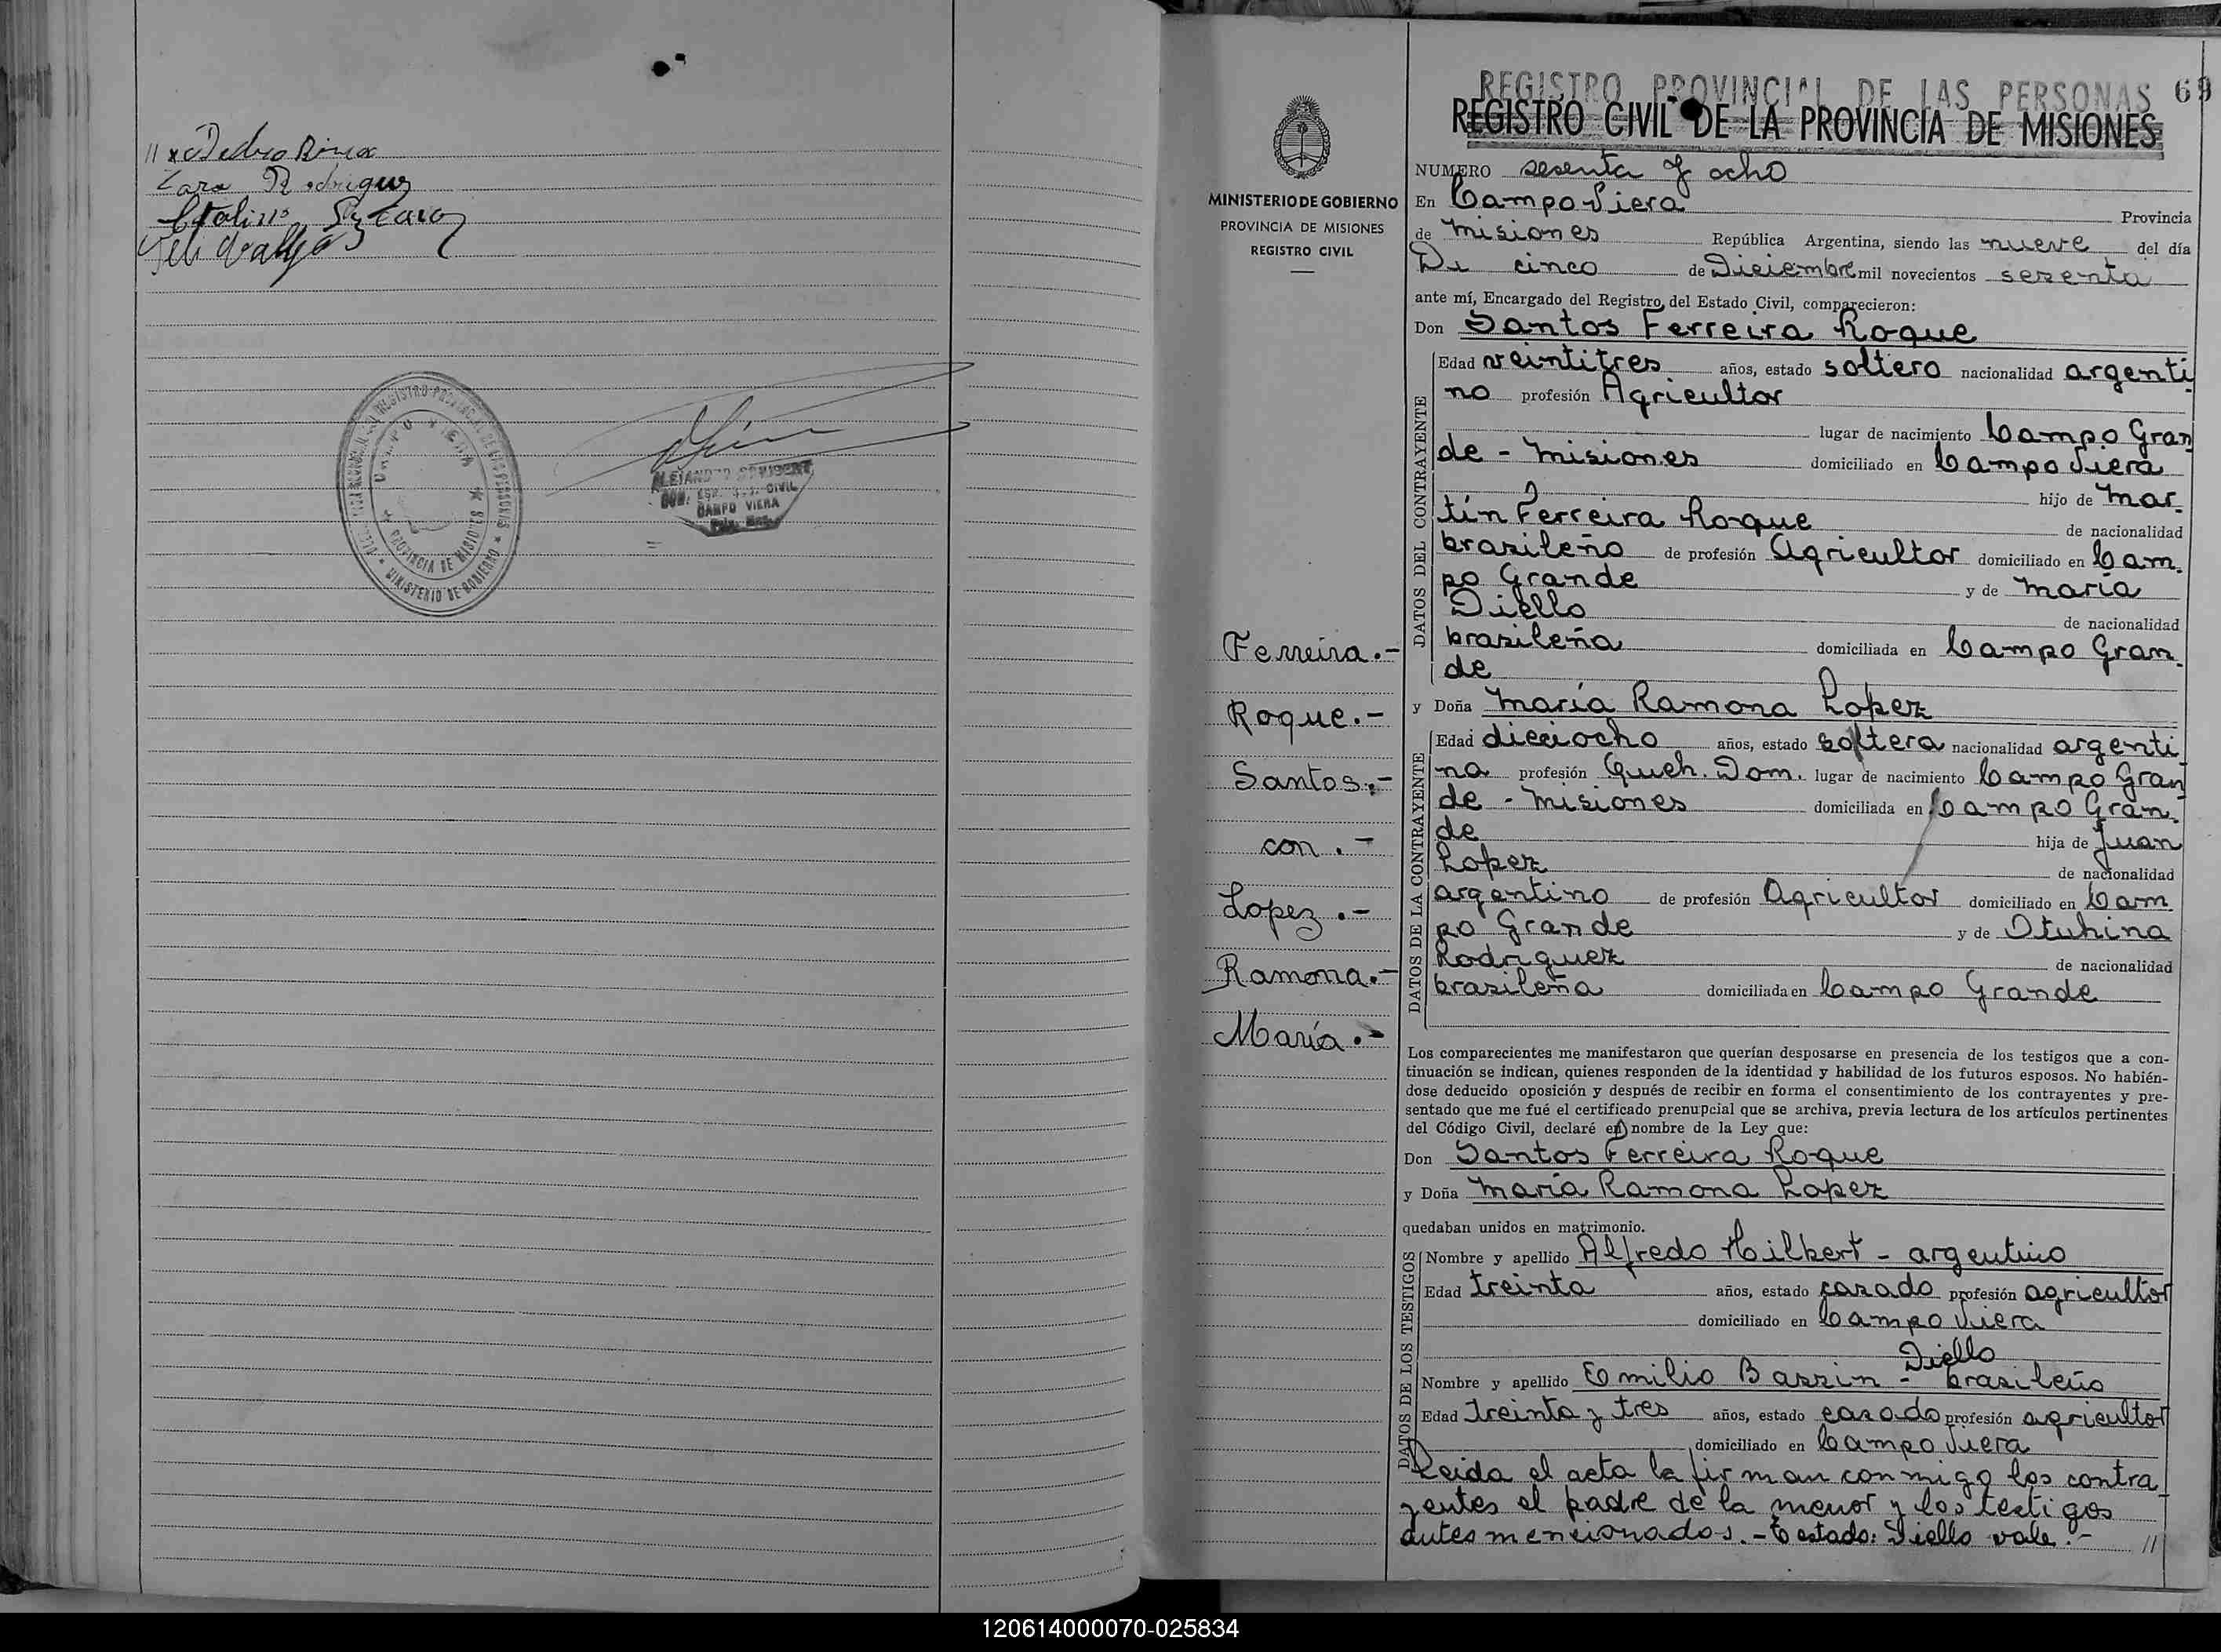 // x Pedro
Rodriguez
MINISTERIO DE GOBIERNO
CAMPO VIERA
PROVINCIA DE MISIONES
ALEJANDRO
CIVIL
CAMPO VIERA
MINISTERIO DE GOBIERNO
PROVINCIA DE MISIONES
REGISTRO CIVIL
Ferreira.-
Roque.-
Santos.-
con.-
Lopez.-
Ramona.-
María.-
REGISTRO PROVINCIAL DE LAS PERSONAS 69
REGISTRO CIVIL DE LA PROVINCIA DE MISIONES
NUMERO sesenta y ocho
En Campo Viera Provincia
de Misiones República Argentina, siendo las nueve del día
De cinco de Diciembre mil novecientos sesenta
ante mí, Encargado del Registro del Estado Civil, comparecieron:
Don Santos Ferreira Roque
DATOS DEL CONTRAYENTE
Edad veintitres años, estado soltero nacionalidad argenti
no profesión Agricultor
lugar de nacimiento Campo Gran
de - Misiones domiciliado en Campo Viera
hijo de Mar-
tín Ferreira Roque de nacionalidad
brasileño de profesión Agricultor domiciliado en Cam-
po Grande y de María
Diello de nacionalidad
brasileña domiciliada en Campo Gran-
de
y Doña María Ramona Lopez
DATOS DE LA CONTRAYENTE
Edad dieciocho años, estado soltera nacionalidad argenti
na profesión Queh. Dom. lugar de nacimiento Campo Gran
de - Misiones domiciliada en Campo Gran-
de hija de Juan
Lopez de nacionalidad
argentino de profesión Agricultor domiciliado en Cam-
po Grande y de Otuhina
Rodriguez de nacionalidad
brasileña domiciliada en Campo Grande
Los comparecientes me manifestaron que querían desposarse en presencia de los testigos que a con-
tinuación se indican, quienes responden de la identidad y habilidad de los futuros esposos. No habién-
dose deducido oposición y después de recibir en forma el consentimiento de los contrayentes y pre-
sentado que me fué el certificado prenupcial que se archiva, previa lectura de los artículos pertinentes
del Código Civil, declaré en nombre de la Ley que:
Don Santos Ferreira Roque
y Doña María Ramona Lopez
quedaban unidos en matrimonio.
DATOS DE LOS TESTIGOS
Nombre y apellido Alfredo Hilbert - argentino
Edad treinta años, estado casado profesión agricultor
domiciliado en Campo Viera
Diello
Nombre y apellido Emilio Bazzin - brasileño
Edad treinta y tres años, estado casado profesión agricultor
domiciliado en Campo Viera
Leida el acta la firman conmigo los contra
yentes el padre de la menor y los testigos
antes mencionados.- Testado: Diello vale.- //
120614000070-025834